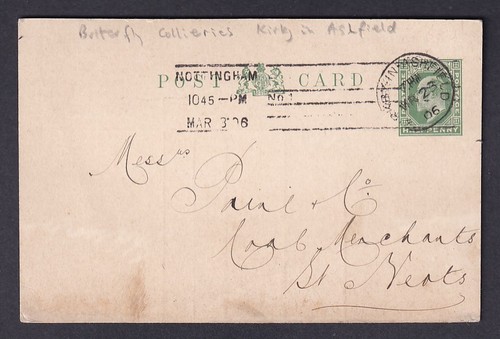 Butterfly Collieries Kirkby in Ashfield
NOTTINGHAM
1045-PM
MAR 3 06
No 1
POST CARD
KIRKBY-IN-ASHFIELD
06
HALFPENNY
Messrs
Paine & Co.
Coal Merchants
St Neots